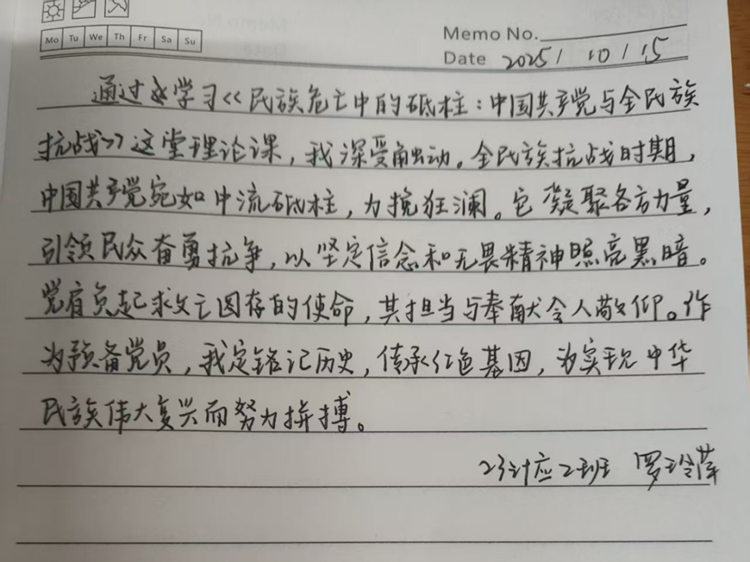 Mo Tu We Th Fr Sa Su
Memo No.
Date 2025/10/15
通过学习<<民族危亡中的砥柱：中国共产党与全民族
抗战>>这堂理论课，我深受触动。全民族抗战时期，
中国共产党宛如中流砥柱，力挽狂澜。它凝聚各方力量，
引领民众奋勇抗争，以坚定信念和无畏精神照亮黑暗。
党肩负起救亡图存的使命，其担当与奉献令人敬仰。作
为预备党员，我定铭记历史，传承红色基因，为实现中华
民族伟大复兴而努力拼搏。
23计应2班 罗玲萍